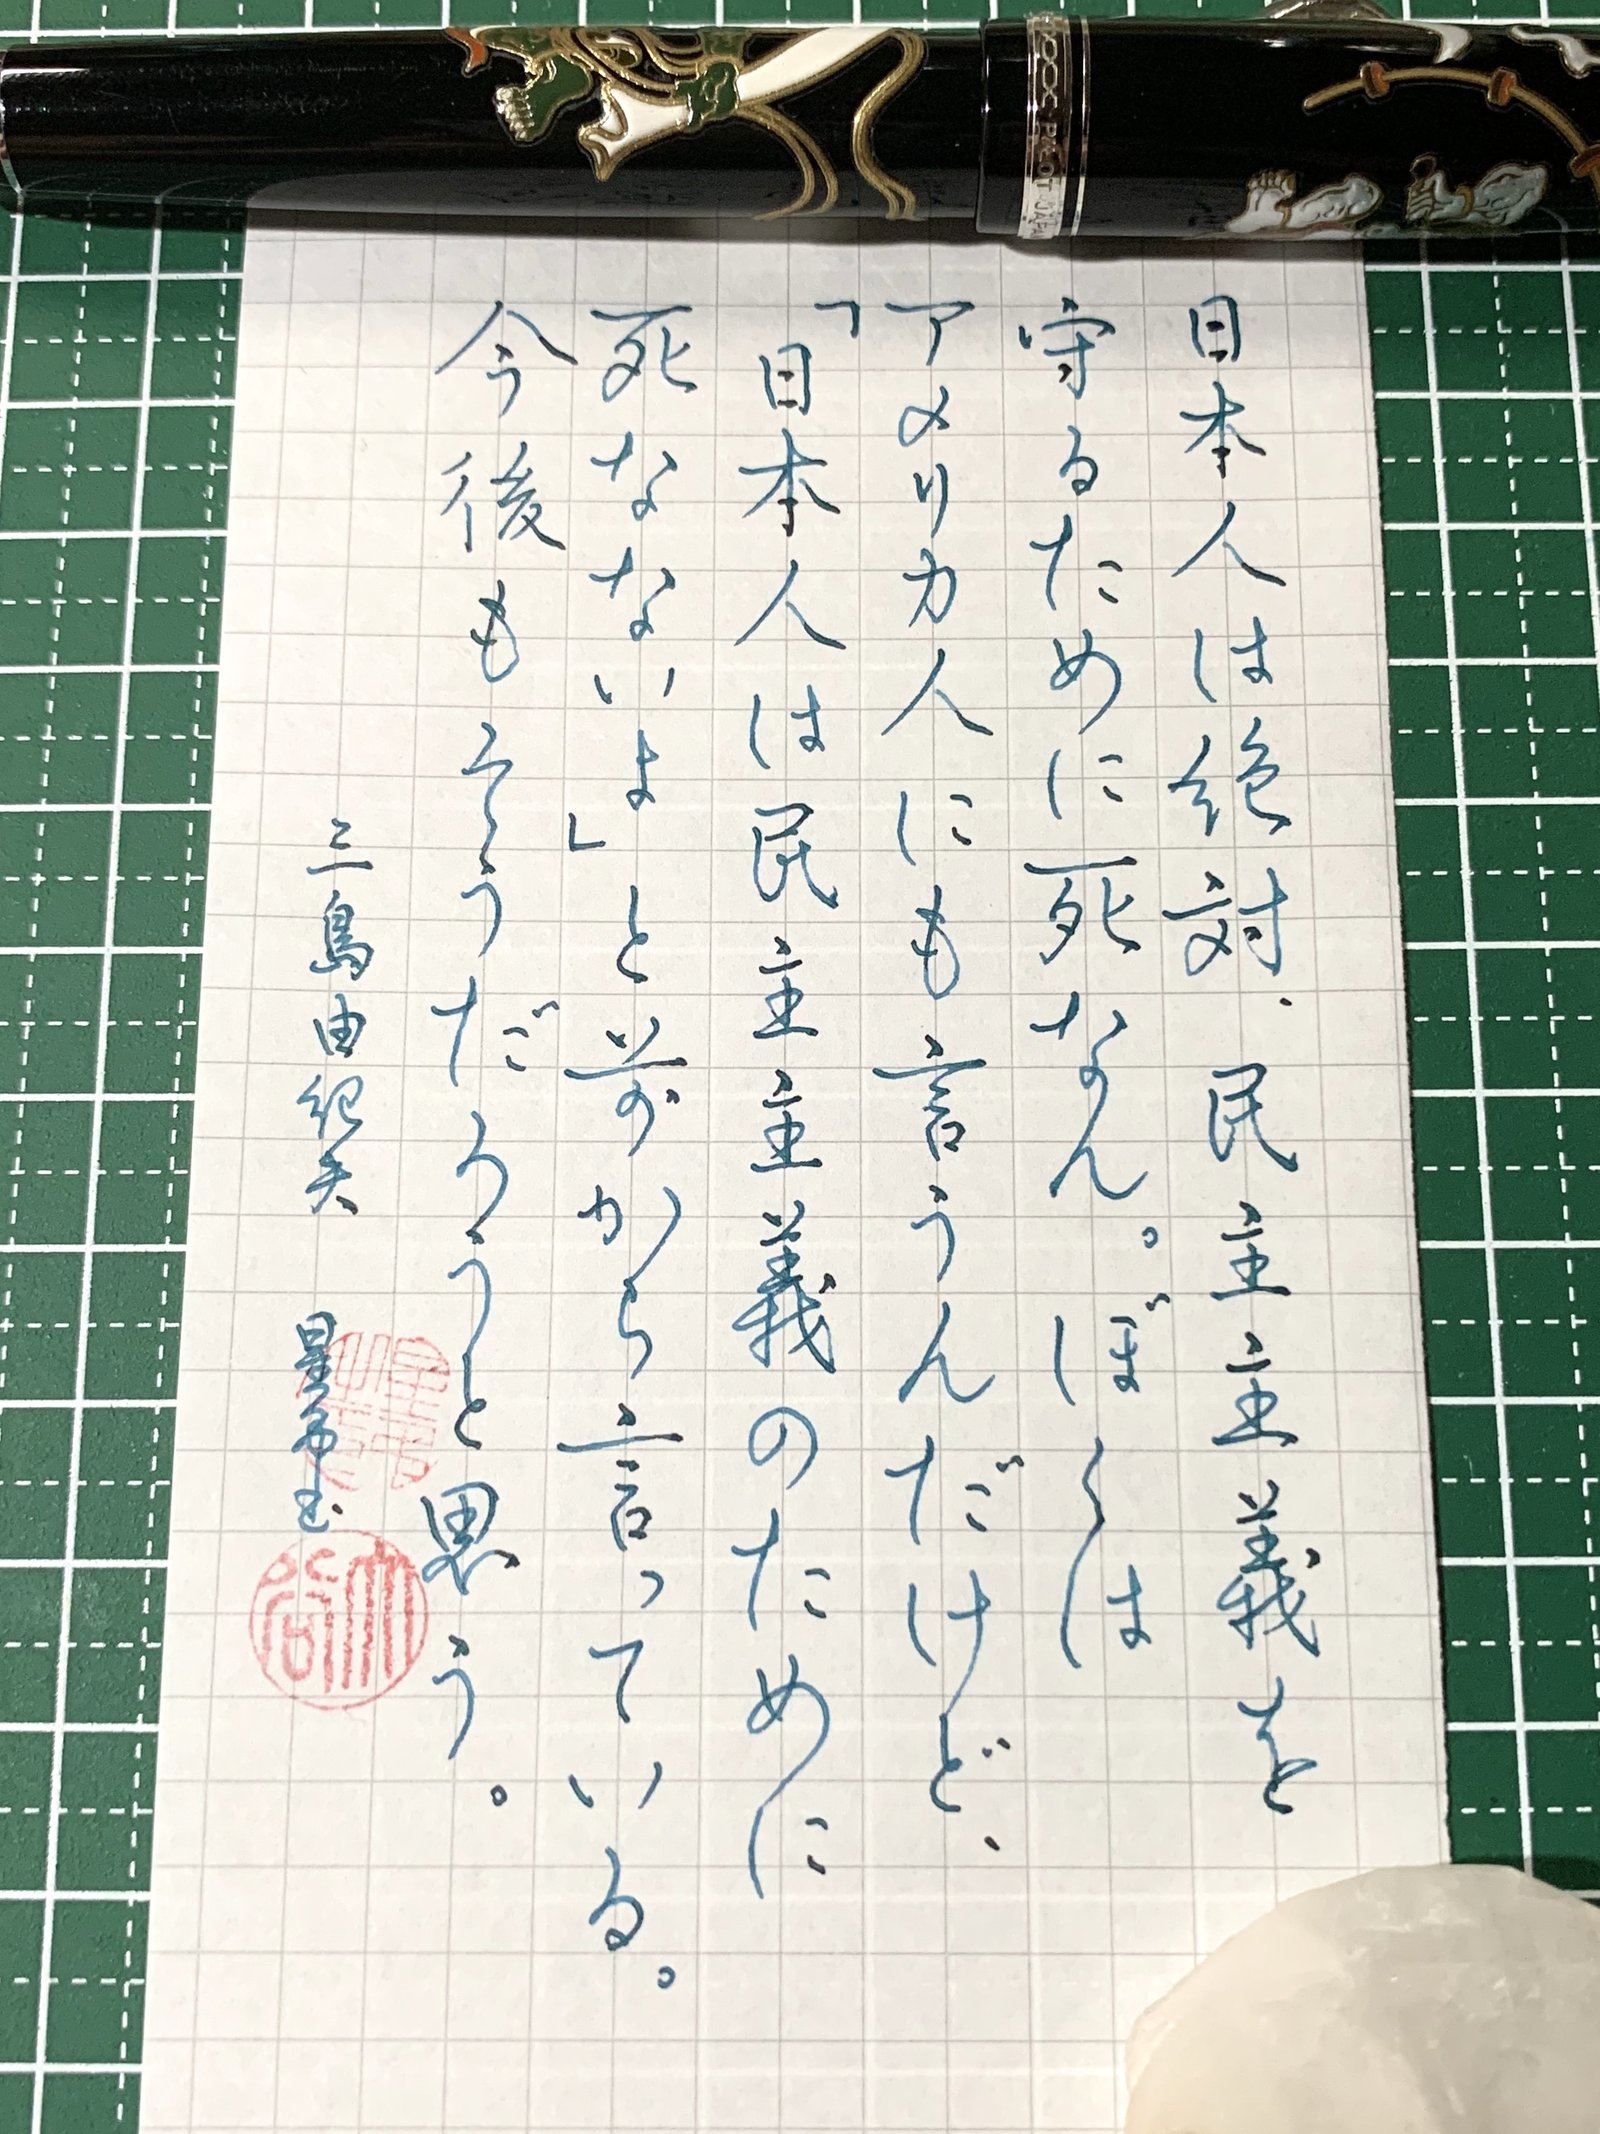 日本人は絶対、民主主義を
守るために死なん。ぼくは
アメリカ人にも言うんだけど、
「日本人は民主主義のために
死なないよ」と前から言っている。
今後もそうだろうと思う。
三島由紀夫
PILOT JAPAN